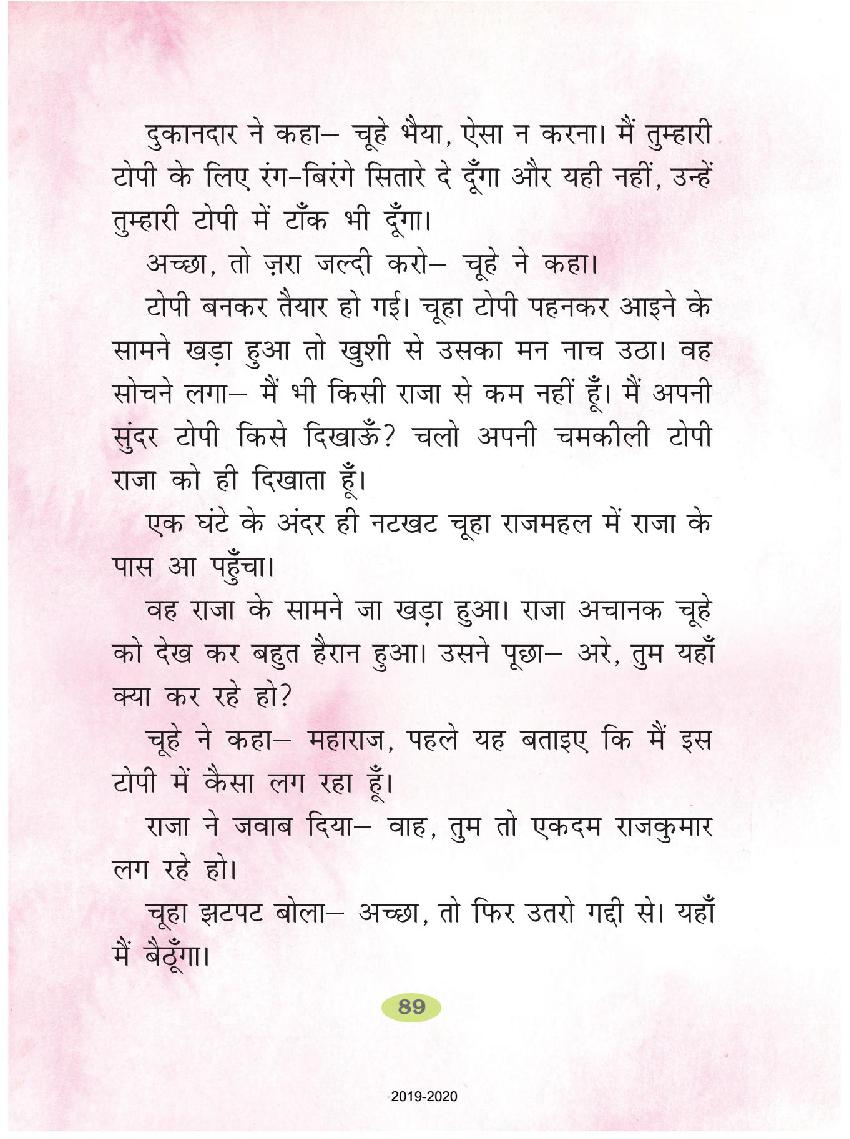 दुकानदार ने कहा– चूहे भैया, ऐसा न करना। मैं तुम्हारी
टोपी के लिए रंग-बिरंगे सितारे दे दूँगा और यही नहीं, उन्हें
तुम्हारी टोपी में टाँक भी दूँगा।
अच्छा, तो ज़रा जल्दी करो– चूहे ने कहा।
टोपी बनकर तैयार हो गई। चूहा टोपी पहनकर आइने के
सामने खड़ा हुआ तो खुशी से उसका मन नाच उठा। वह
सोचने लगा– मैं भी किसी राजा से कम नहीं हूँ। मैं अपनी
सुंदर टोपी किसे दिखाऊँ? चलो अपनी चमकीली टोपी
राजा को ही दिखाता हूँ।
एक घंटे के अंदर ही नटखट चूहा राजमहल में राजा के
पास आ पहुँचा।
वह राजा के सामने जा खड़ा हुआ। राजा अचानक चूहे
को देख कर बहुत हैरान हुआ। उसने पूछा– अरे, तुम यहाँ
क्या कर रहे हो?
चूहे ने कहा– महाराज, पहले यह बताइए कि मैं इस
टोपी में कैसा लग रहा हूँ।
राजा ने जवाब दिया– वाह, तुम तो एकदम राजकुमार
लग रहे हो।
चूहा झटपट बोला– अच्छा, तो फिर उतरो गद्दी से। यहाँ
मैं बैठूँगा।
89
2019-2020